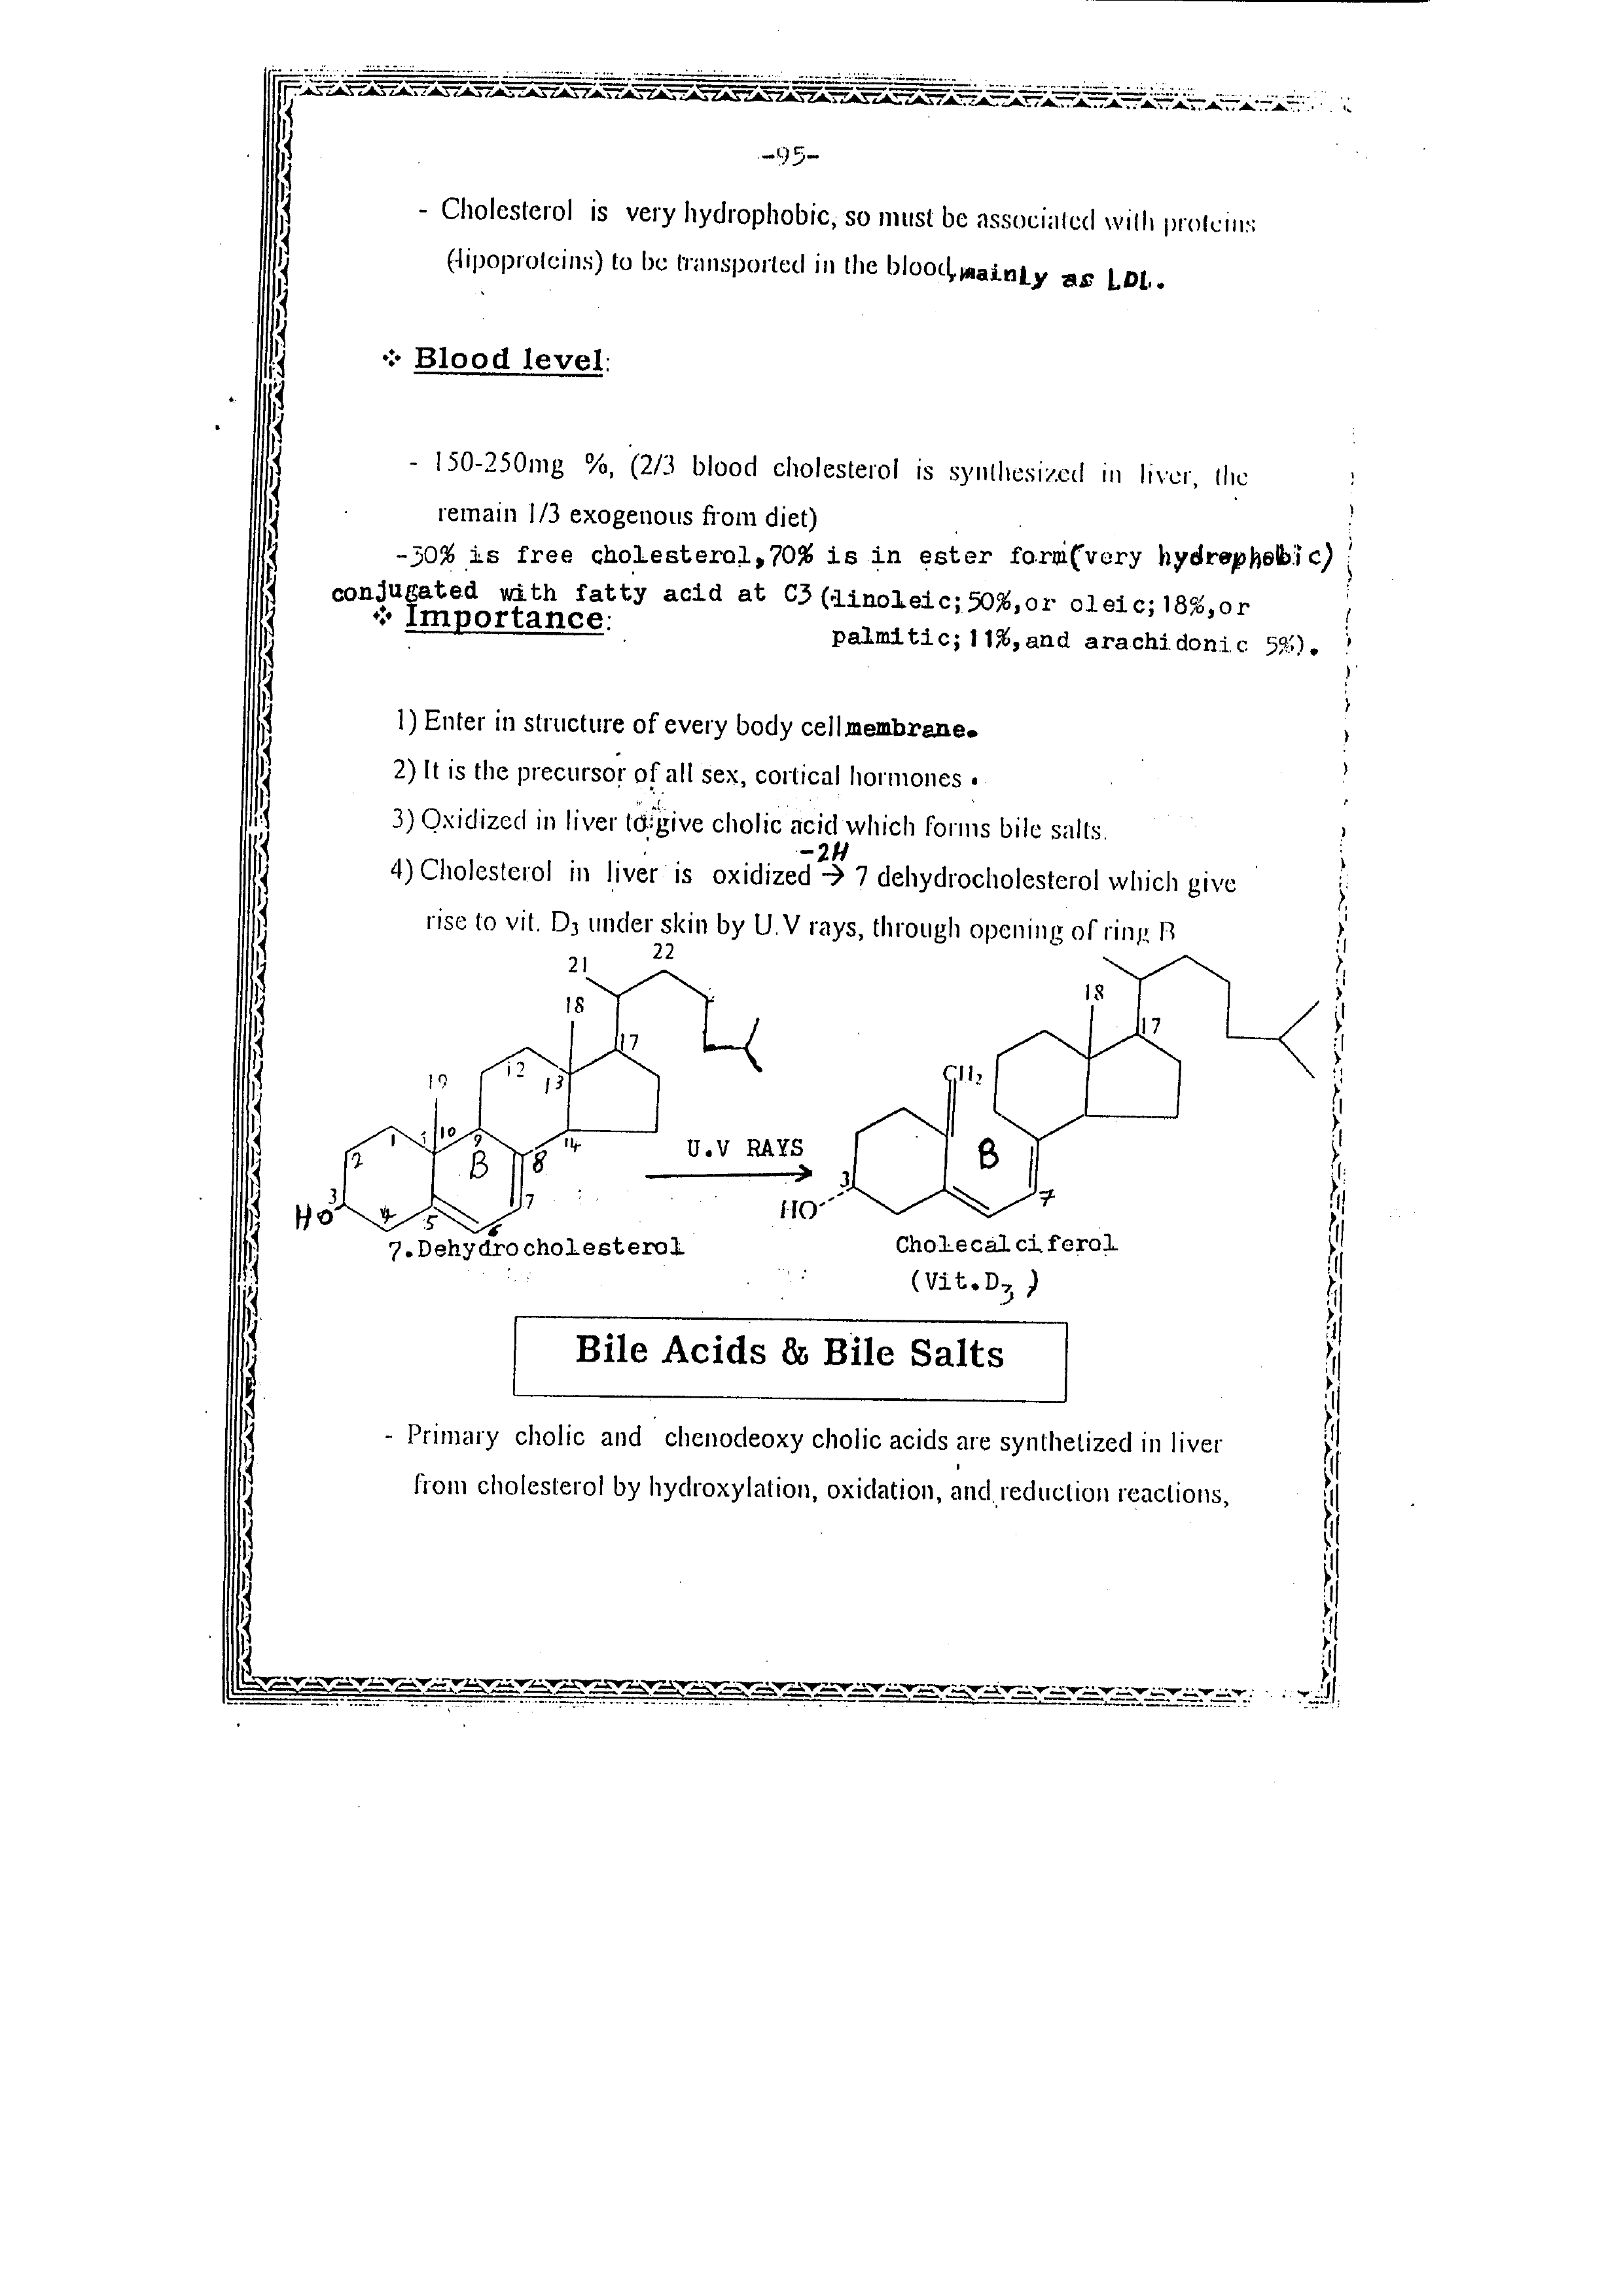 -95-
- Cholesterol is very hydrophobic, so must be associated with proteins
(lipoproteins) to be transported in the blood, mainly as LDL.
❖ Blood level:
- 150-250mg %, (2/3 blood cholesterol is synthesized in liver, the
remain 1/3 exogenous from diet)
-30% is free cholesterol, 70% is in ester form (very hydrophobic)
conjugated with fatty acid at C3 (linoleic; 50%, or oleic; 18%, or
palmitic; 11%, and arachidonic 5%).
❖ Importance:
1) Enter in structure of every body cell membrane.
2) It is the precursor of all sex, cortical hormones .
3) Oxidized in liver to give cholic acid which forms bile salts.
-2H
4) Cholesterol in liver is oxidized → 7 dehydrocholesterol which give
rise to vit. D3 under skin by U.V rays, through opening of ring B
21 22
18
17
12
13
19
1 10 9
2 B 8 14
3 7
HO 4 5 6
7.Dehydrocholesterol
U.V RAYS
18
17
CH2
B
3 7
HO
Cholecalciferol
(Vit.D3 )
Bile Acids & Bile Salts
- Primary cholic and chenodeoxy cholic acids are synthetized in liver
from cholesterol by hydroxylation, oxidation, and reduction reactions,